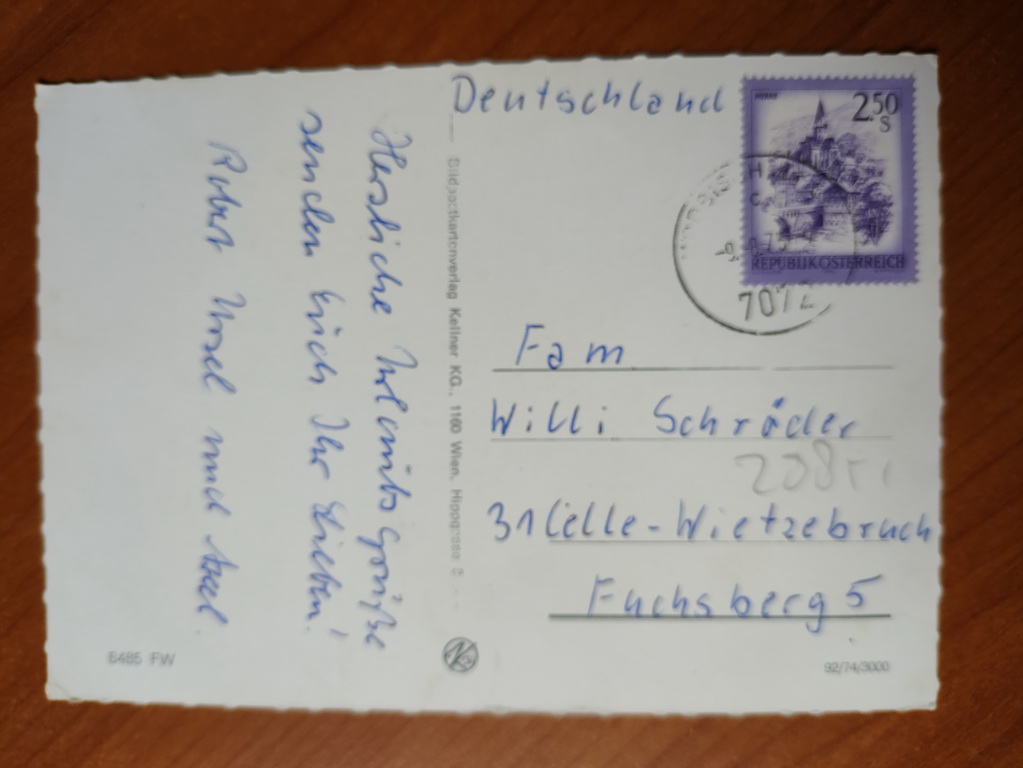 Herzliche Urlaubsgrüße
senden Euch Ihr Lieben!
Robert Ursel und Axel.
6485 FW
Bildpostkartenverlag Kellner KG., 1160 Wien,
Deutschland
2.50
S
REPUBLIK ÖSTERREICH
7072
Fam
Willi Schräder
31 Celle-Wietzebruch
Fuchsberg 5
92/74/3000